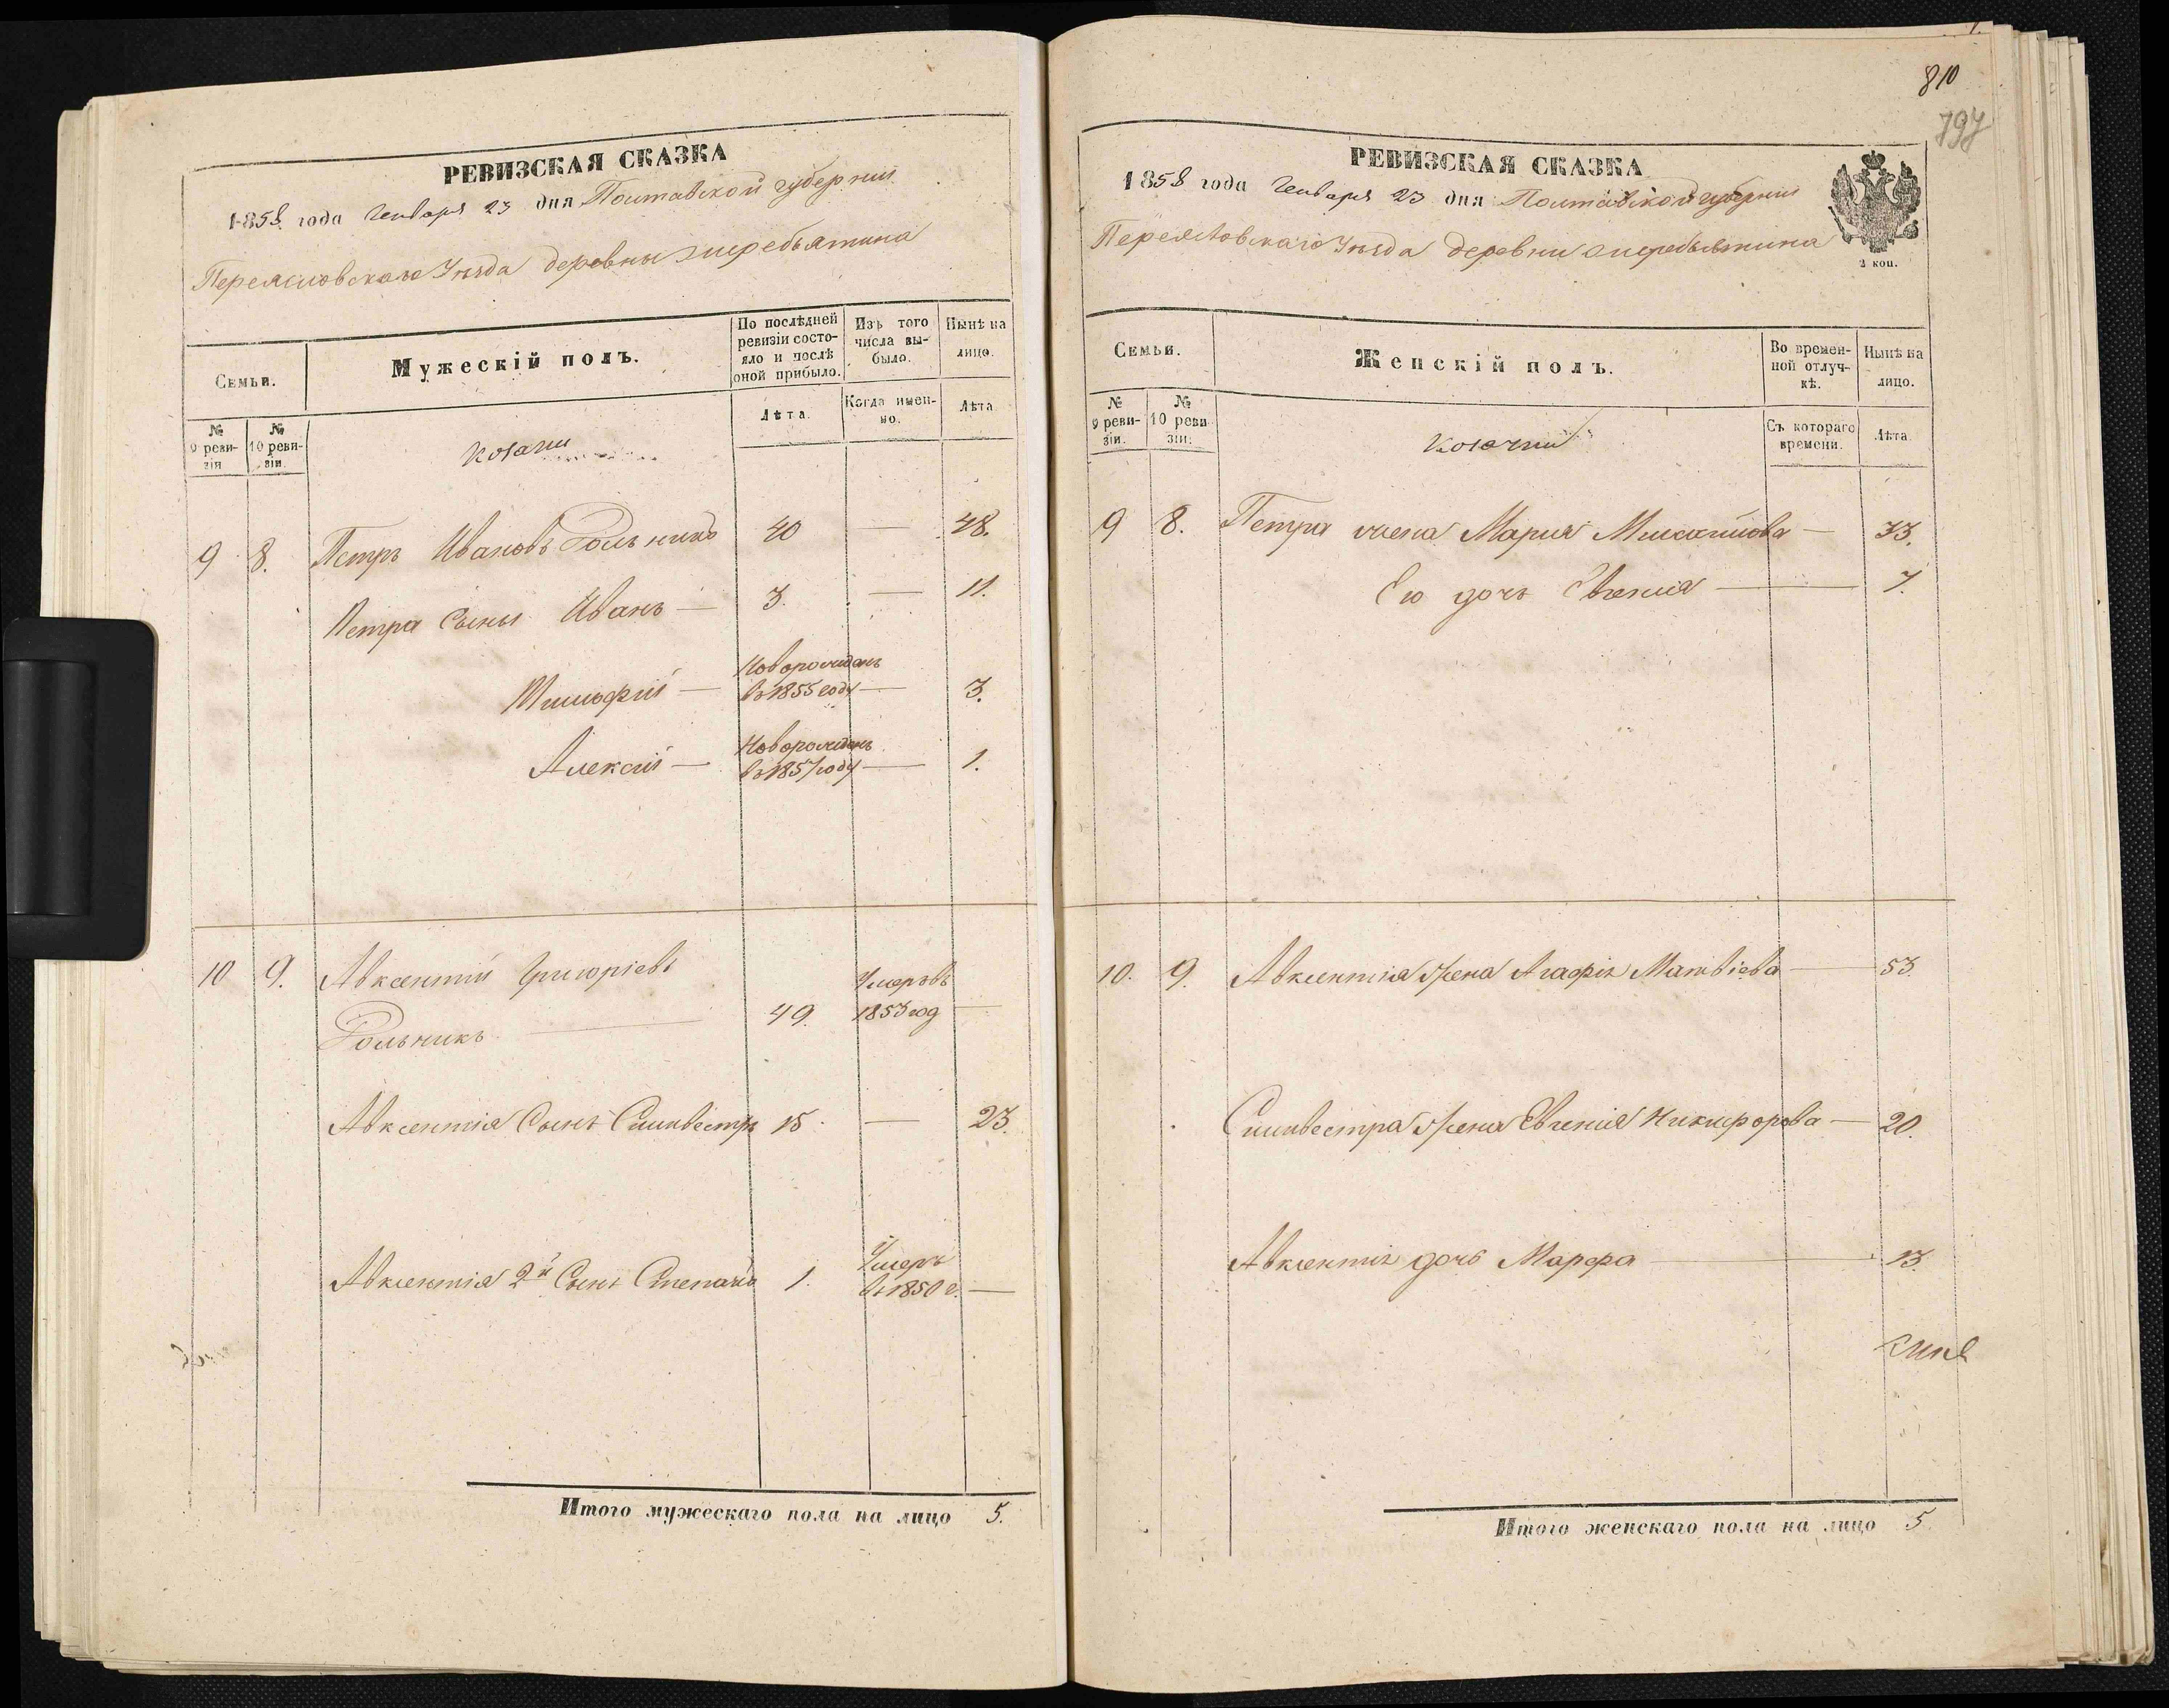 РЕВИЗСКАЯ СКАЗКА
1858 года Генваря 23 дня Полтавской губернии
Переяславскаго Уезда деревны Жеребьятина
Семьи.
Мужескій полъ.
По послѣдней ревизіи состояло и послѣ оной прибыло.
Изъ того числа выбыло.
Нынѣ на лицо.
№ 9 ревизія
№ 10 ревизіи.
Козаки
Лѣта.
Когда именно.
Лѣта
9 8. Петръ Ивановъ Гольникъ 40 — 48.
Петра Сыны Иванъ — 3. — 11.
Тимофій — Новорожденъ въ 1855 году — 3.
Алексій — Новорожденъ въ 1857 году — 1.
10 9. Авксентий Григоріевъ
Гольникъ — 49. Умеръ въ 1853 год —
Авксентія Сынъ Силвестръ 15 — 23.
Авксентія 2й Сынъ Степанъ 1. Умеръ въ 1850 г. —
Итого мужескаго пола на лицо 5.
810
797
РЕВИЗСКАЯ СКАЗКА
1858 года Генваря 23 дня Полтавской губернии
Переяславскаго Уезда деревни Жеребьятина
2 коп.
Семьи.
Женскій полъ.
Во временной отлучкѣ.
Нынѣ на лицо.
№ 9 ревизіи.
№ 10 ревизіи.
Козачки
Съ котораго времени.
Лѣта.
9 8. Петра жена Мария Михайлова — 33.
Его дочь Евгения — 7.
10. 9. Авксентія Жена Агафія Матвіева — 53.
Силвестра Жена Евгенія Никифорова — 20.
Авксентія дочь Марфа — 13.
Итого женскаго пола на лицо 5